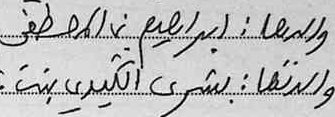 والدها : ابراهيم بن المصطفى
والدتها : بشرى الكبيري بنت :